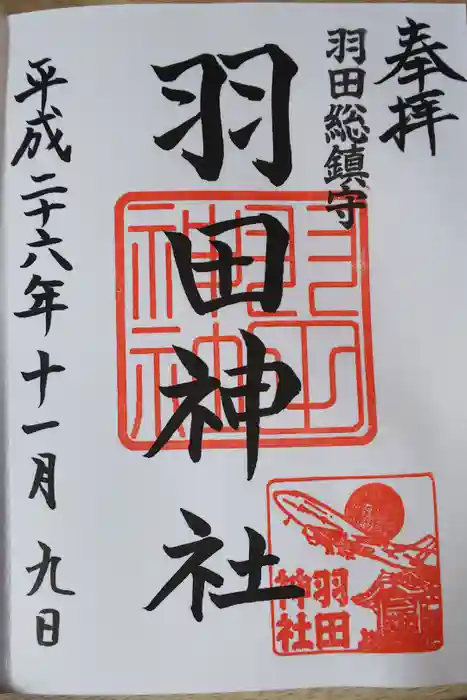 奉拝
羽田総鎮守
羽田神社
平成二十六年十一月九日
羽田
神社